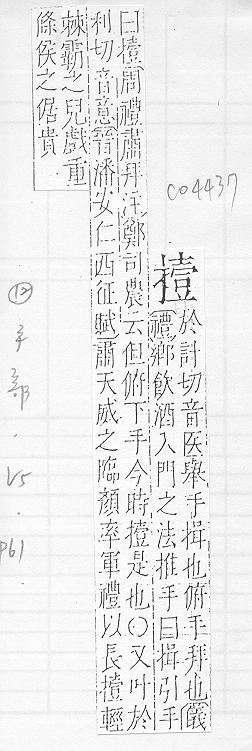 撎
於計切音医舉手揖也俯手拜也儀
禮鄉飲酒入門之法推手曰揖引手
曰撎周禮肅拜注鄭司農云但俯下手今時撎是也○又叶於
利切音意晉潘安仁西征賦肅天威之臨顏率軍禮以長撎輕
棘霸之兒戲重
條侯之倨貴
C04437
⑫手部.V5.
P61